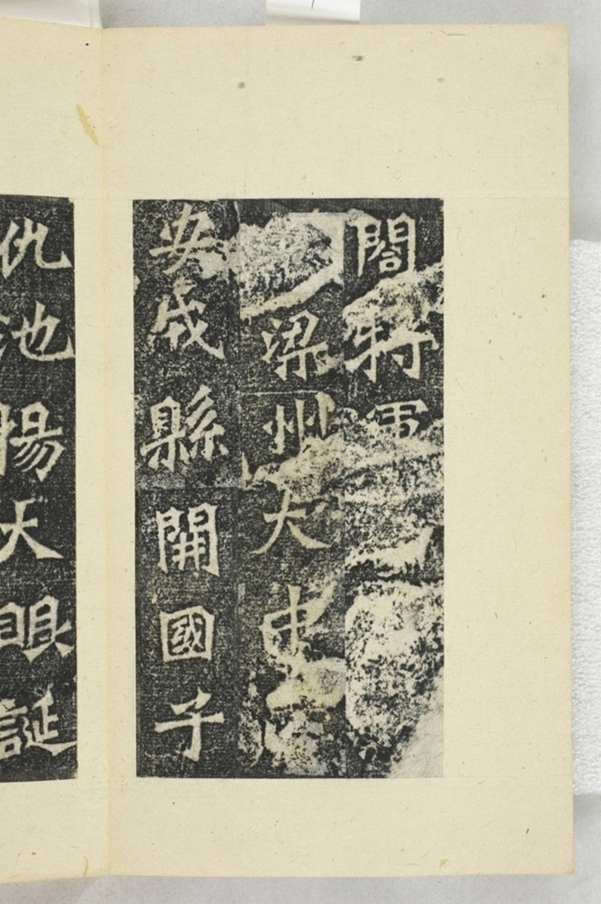 閤將軍
梁州大中
安戎縣開國子
仇池楊大眼誕